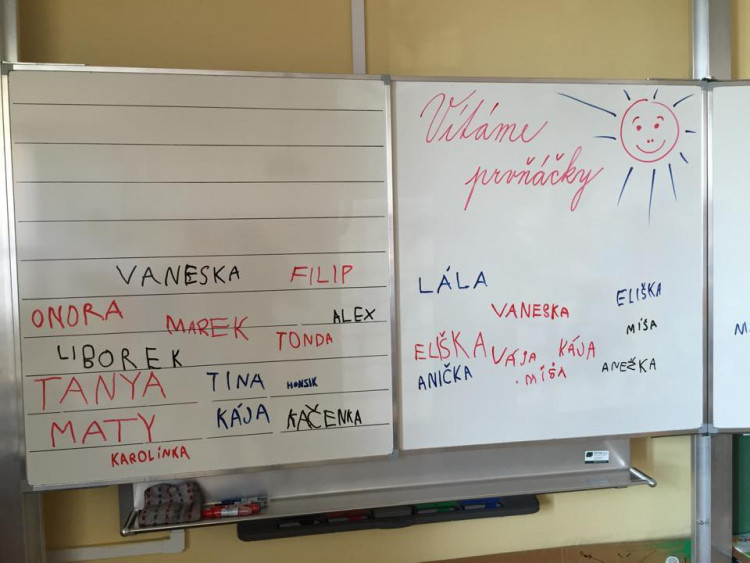 VANESKA FILIP
ONDRA MAREK ALEX
LIBOREK TONDA
TANYA TINA HONSIK
MATY KÁJA KAČENKA
KAROLÍNKA
Vítáme
prvňáčky
LÁLA ELIŠKA
VANESKA MÍSA
ELIŠKA VÁJA KÁJA
ANIČKA MÍŠA ANEŽKA